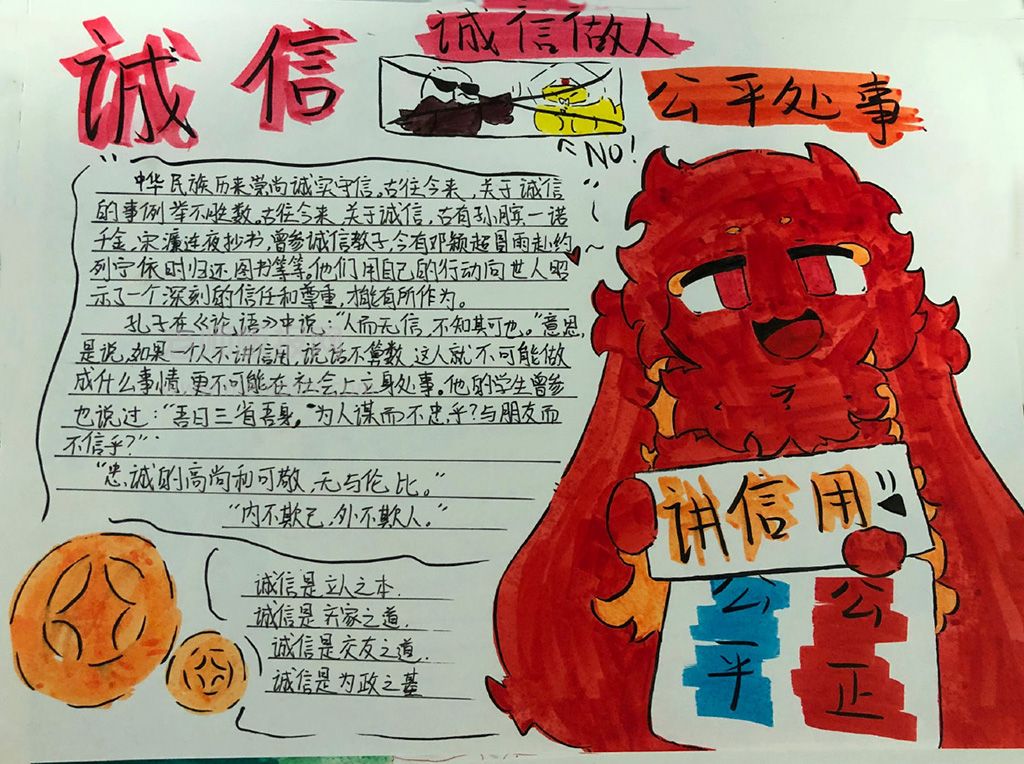 诚信
诚信做人
公平处事
NO!
中华民族历来崇尚诚实守信。古往今来，关于诚信
的事例举不胜数，古往今来，关于诚信，古有孙膑一诺
千金，宋濂连夜抄书，曾参诚信教子，今有邓颖超冒雨赴约
列宁依时归还图书等等。他们用自己的行动向世人昭
示了一个深刻的信任和尊重，才能有所作为。
孔子在《论语》中说："人而无信，不知其可也。"意思
是说，如果一个人不讲信用，说话不算数，这人就不可能做
成什么事情，更不可能在社会上立身处事。他的学生曾参
也说过："吾日三省吾身。"为人谋而不忠乎？与朋友而
不信乎？"
"忠诚的高尚和可敬，无与伦比。"
"内不欺己，外不欺人。"
诚信是立人之本.
诚信是齐家之道.
诚信是交友之道.
诚信是为政之基
讲信用
公平
公正